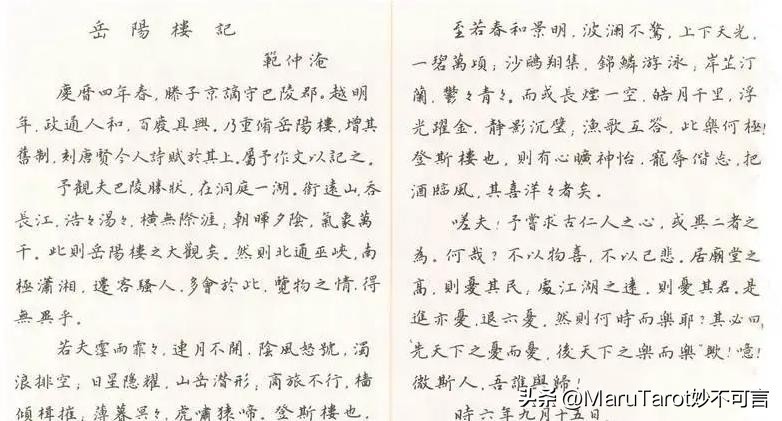 岳陽樓記
範仲淹
慶曆四年春,滕子京謫守巴陵郡。越明
年,政通人和,百廢具興。乃重脩岳陽樓,增其
舊制,刻唐賢今人詩賦於其上。屬予作文以記之。
予觀夫巴陵勝狀,在洞庭一湖。銜遠山,吞
長江,浩々湯々,橫無際涯;朝暉夕陰,氣象萬
千。此則岳陽樓之大觀矣。然則北通巫峽,南
極瀟湘,遷客騷人,多會於此,覽物之情,得
無異乎。
若夫霪雨霏々,連月不開,陰風怒號,濁
浪排空;日星隱耀,山岳潛形;商旅不行,檣
傾楫摧;薄暮冥々,虎嘯猿啼。登斯樓也,
至若春和景明,波瀾不驚,上下天光,
一碧萬頃;沙鷗翔集,錦鱗游泳;岸芷汀
蘭,鬱々青々。而或長煙一空,皓月千里,浮
光躍金,靜影沉璧;漁歌互答,此樂何極!
登斯樓也,則有心曠神怡,寵辱偕忘,把
酒臨風,其喜洋々者矣。
嗟夫!予嘗求古仁人之心,或異二者之
為。何哉?不以物喜,不以己悲。居廟堂之
高,則憂其民;處江湖之遠,則憂其君。是
進亦憂,退亦憂。然則何時而樂耶?其必曰
"先天下之憂而憂,後天下之樂而樂"歟!噫!
微斯人,吾誰與歸!
時六年九月十五日。
头条 @MaruTarot妙不可言